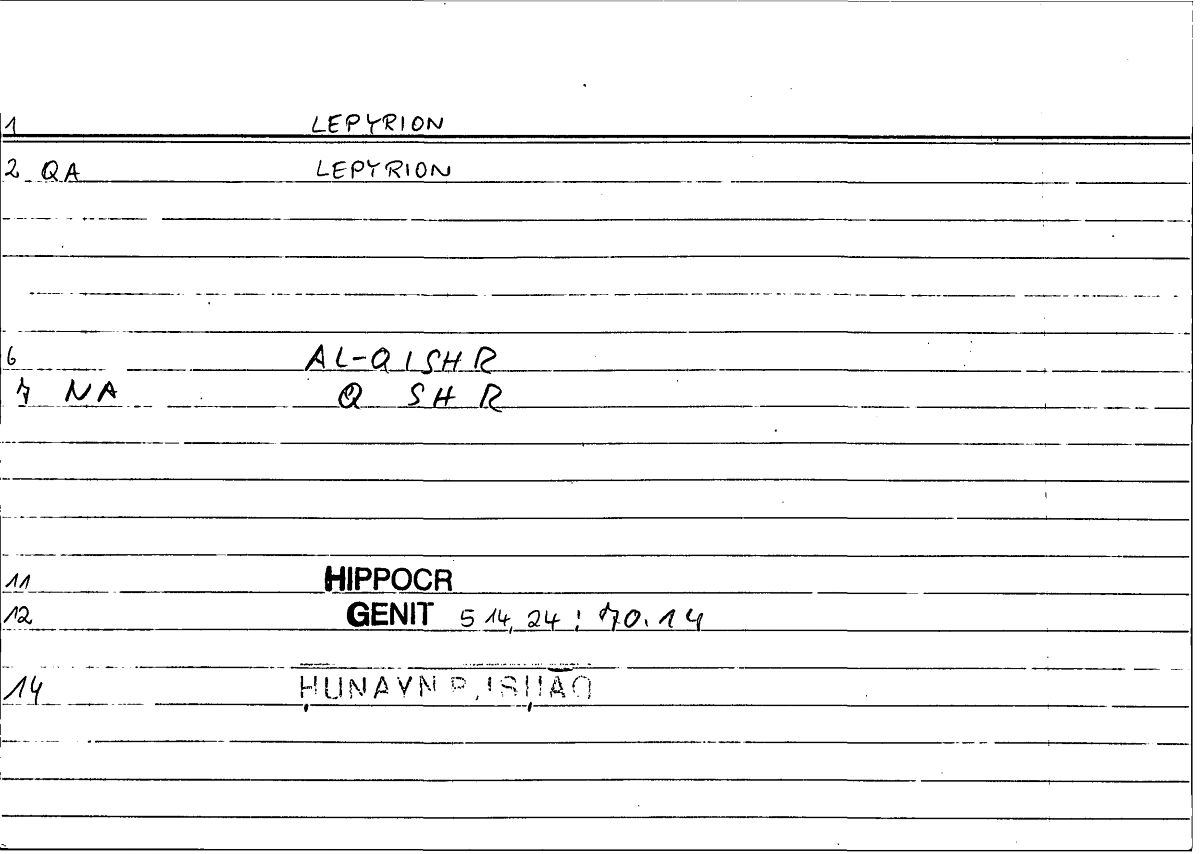 1 LEPYRION
2 QA LEPYRION
6 AL-QISHR
7 NA Q SH R
11 HIPPOCR
12 GENIT 514,24 : 70.14
14 ḤUNAYN B. ISḤĀQ